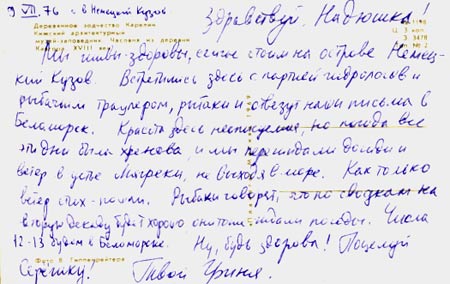 9 VII. 76 г. о. Немецкий Кузов.
Здравствуй, Надюшка!
Деревянное зодчество Карелии.
Кижский архитектурный
музей-заповедник. Часовня из деревни
XVIII век
Ц 3 коп.
З. 3478
№ 2
Мы живы-здоровы, сейчас стоим на острове Немец-
кий Кузов. Встретились здесь с партией гидрологов и
рыбачим траулером, рыбаки и отвезут наши письма в
Беломорск. Красота здесь неописуемая, но погода все
эти дни была хренова, и мы пережидали дожди и
ветер в устье Мягреки, не выходя в море. Как только
ветер стих - пошли. Рыбаки говорят, что по сводкам на
вторую декаду будет хорошо они тоже ждали погоды. Числа
12-13 будем в Беломорске. Ну, будь здорова! Поцелуй
Сережку! Твой Гриня.
Фото В. Гиппенрейтера